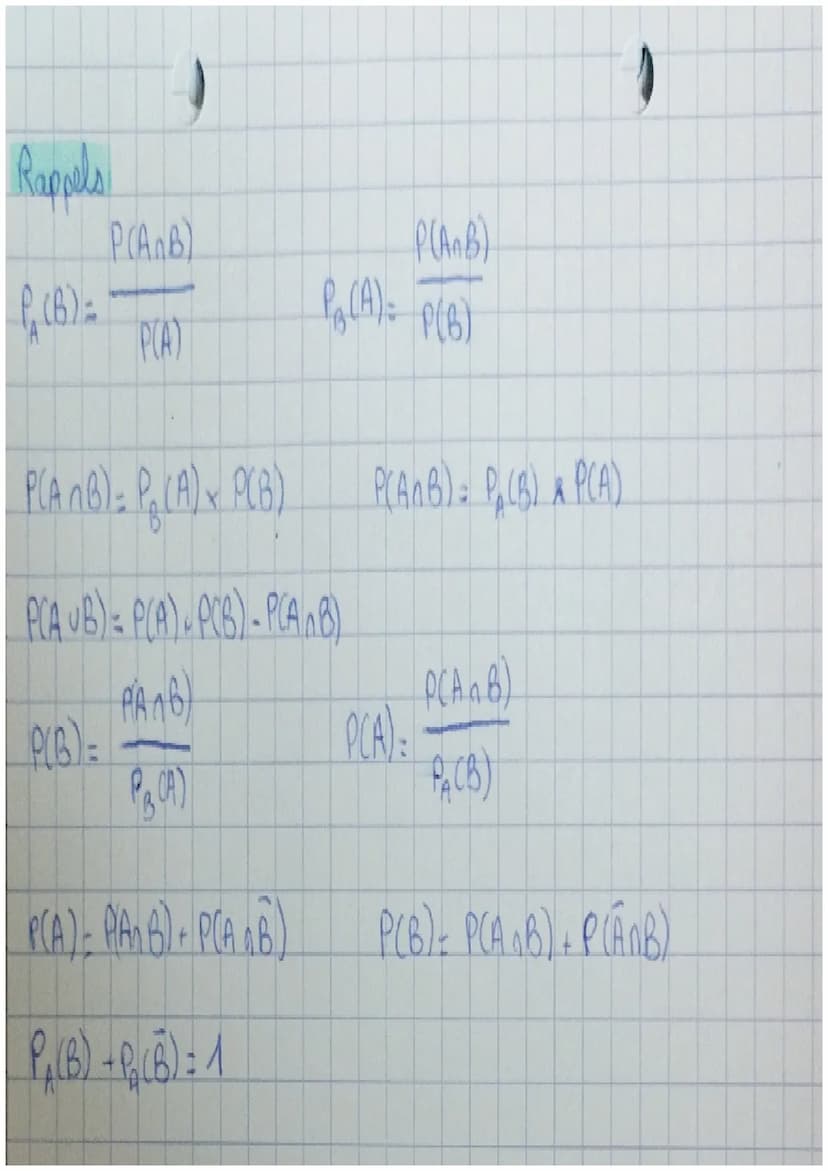 Rappels
P_A(B) = P(A∩B) / P(A)    P_B(A) = P(A∩B) / P(B)
P(A∩B) = P_B(A) × P(B)    P(A∩B) = P_A(B) × P(A)
P(A∪B) = P(A) + P(B) - P(A∩B)
P(B) = P(A∩B) / P_B(A)    P(A) = P(A∩B) / P_A(B)
P(A) = P(A∩B) + P(A∩B̄)    P(B) = P(A∩B) + P(Ā∩B)
P_A(B) + P_A(B̄) = 1